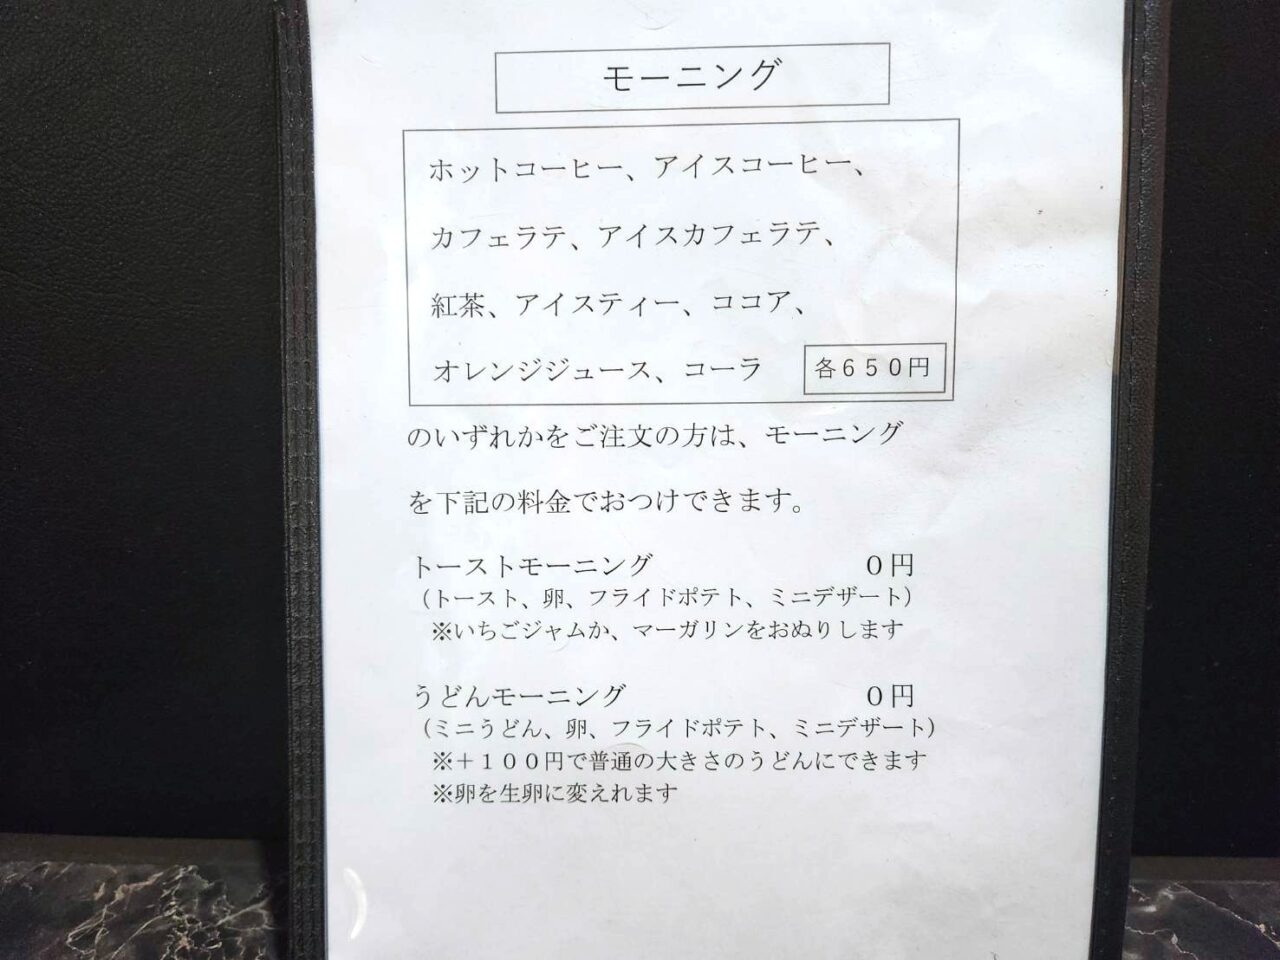 モーニング
ホットコーヒー、アイスコーヒー、
カフェラテ、アイスカフェラテ、
紅茶、アイスティー、ココア、
オレンジジュース、コーラ 各６５０円
のいずれかをご注文の方は、モーニング
を下記の料金でおつけできます。
トーストモーニング ０円
（トースト、卵、フライドポテト、ミニデザート）
※いちごジャムか、マーガリンをおぬりします
うどんモーニング ０円
（ミニうどん、卵、フライドポテト、ミニデザート）
※＋１００円で普通の大きさのうどんにできます
※卵を生卵に変えれます